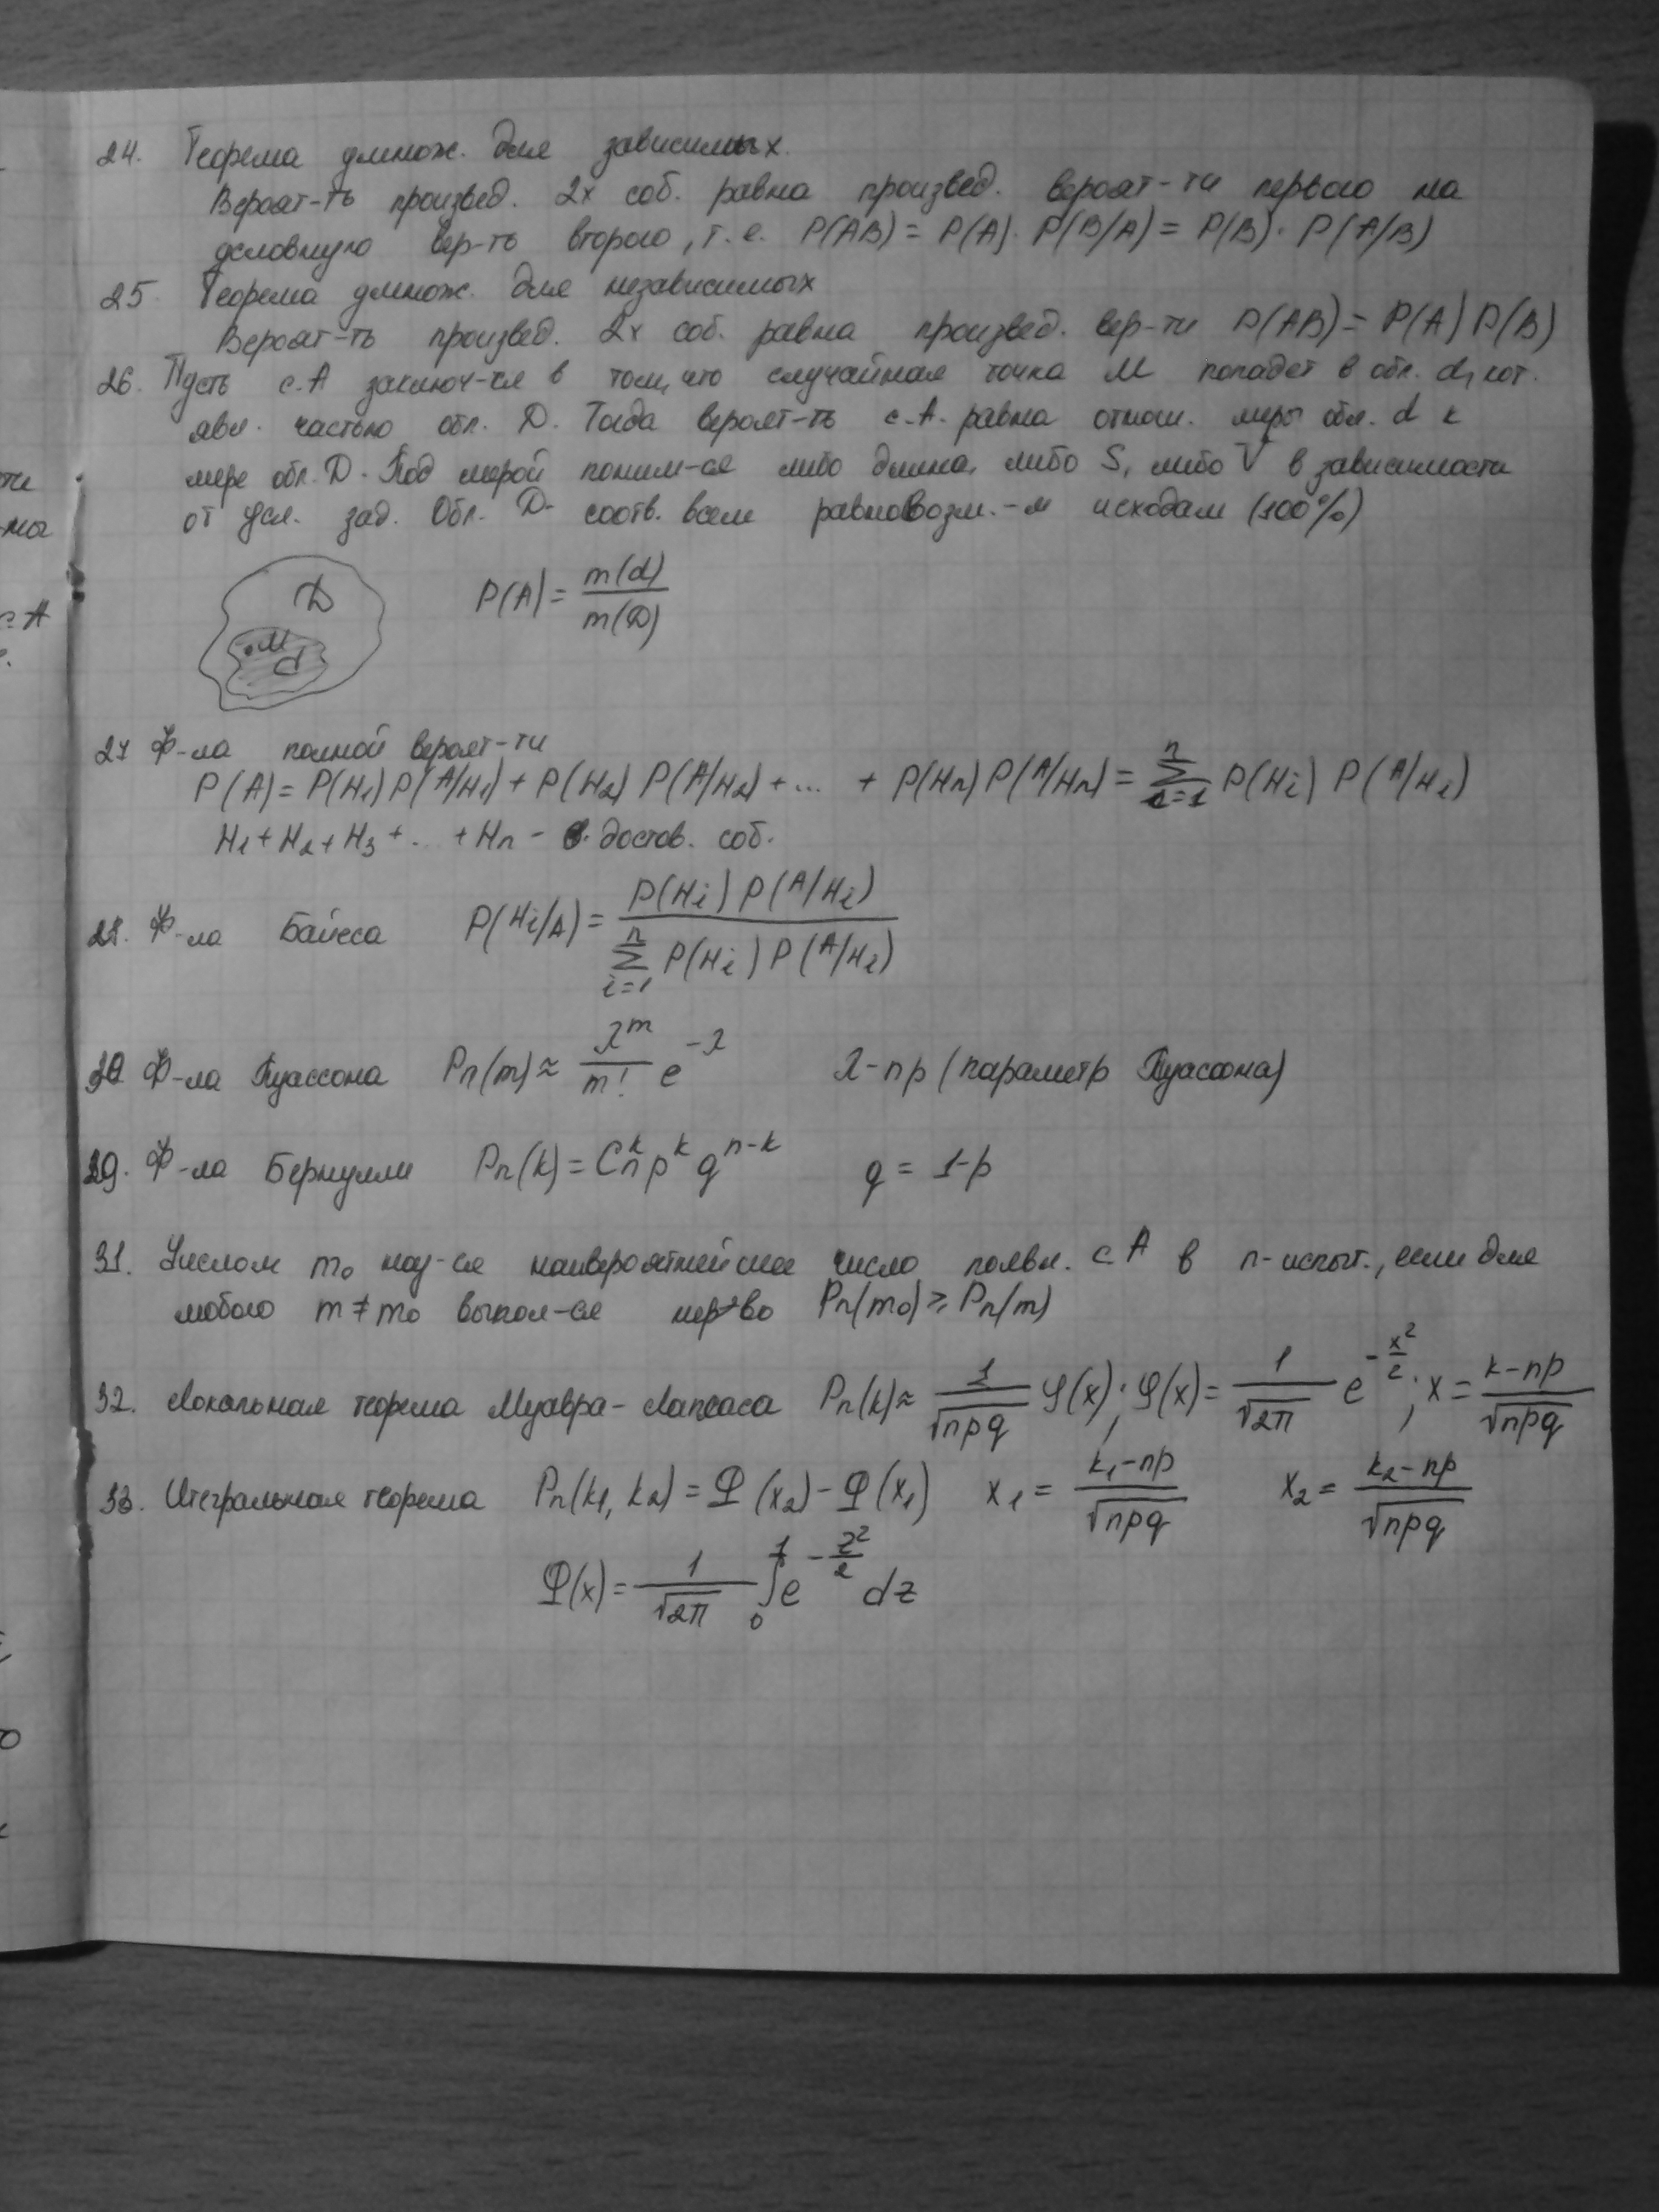 24. Теорема умнож. для зависимых.
Вероят-ть произвед. 2х соб. равна произвед. вероят-ти первого на
условную вер-ть второго, т.е. P(AB) = P(A) · P(B/A) = P(B) · P(A/B)
25. Теорема умнож. для независимых
Вероят-ть произвед. 2х соб. равна произвед. вер-ти P(AB) = P(A) P(B)
26. Пусть с.А заключ-ся в том, что случайная точка М попадет в обл. d, кот.
явл. частью обл. D. Тогда вероят-ть с.А. равна отнош. меры обл. d к
мере обл. D. Под мерой поним-ся либо длина, либо S, либо V в зависимости
от усл. зад. Обл. D- соотв. всем равновозм.-м исходам (100%)
D
M
d
P(A) = m(d)/m(D)
27 Ф-ла полной вероят-ти
P(A) = P(H₁) P(A/H₁) + P(H₂) P(A/H₂) + ... + P(Hn) P(A/Hn) = ∑ⁿᵢ₌₁ P(Hi) P(A/Hi)
H₁ + H₂ + H₃ + ... + Hn - достов. соб.
28. Ф-ла Байеса P(Hi/A) = P(Hi) P(A/Hi) / ∑ⁿᵢ₌₁ P(Hi) P(A/Hi)
30 Ф-ла Пуассона Pn(m) ≈ λᵐ/m! e^-λ λ-np (параметр Пуассона)
29. Ф-ла Бернулли Pn(k) = Cₙᵏ pᵏ qⁿ⁻ᵏ q = 1-p
31. Числом m₀ наз-ся наивероятнейшее число появл. с А в n-испыт., если для
любого m ≠ m₀ выпол-ся нер-во Pn(m₀) ⩾ Pn(m)
32. Локальная теорема Муавра-Лапласа Pn(k) ≈ 1/√npq φ(x); φ(x) = 1/√2π e^-x²/2; x = k-np/√npq
33. Итегральная теорема Pn(k₁, k₂) = Φ(x₂) - Φ(x₁) x₁ = k₁-np/√npq x₂ = k₂-np/√npq
Φ(x) = 1/√2π ∫ e^-z²/2 dz